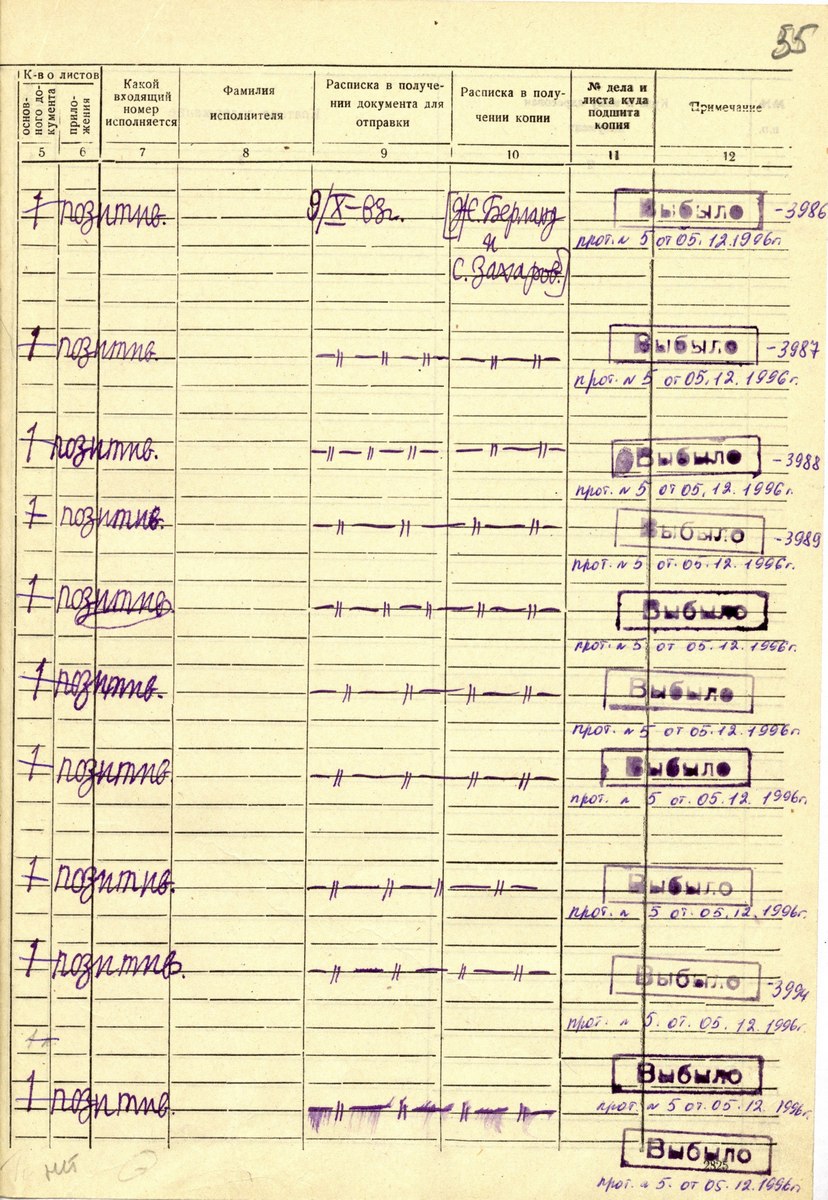 55
К-во листов
основного документа
приложения
Какой входящий номер исполняется
Фамилия исполнителя
Расписка в получении документа для отправки
Расписка в получении копии
№ дела и листа куда подшита копия
Примечание
5 6 7 8 9 10 11 12
1 позитив. 9/X-83г. [Ж. Берланд Выбыло -3986
и прот. № 5 от 05.12.1996г.
С. Захаров.]
1 позитив. —〃—〃—〃— —〃—〃— Выбыло -3987
прот. № 5 от 05.12.1996г.
1 позитив. —〃—〃—〃— —〃—〃— Выбыло -3988
прот. № 5 от 05.12.1996г.
1 позитив. —〃—〃—〃—〃— Выбыло -3989
прот. № 5 от 05.12.1996г.
1 позитив. —〃—〃—〃—〃—〃— Выбыло
прот. № 5 от 05.12.1996г.
1 позитив. —〃—〃—〃—〃— Выбыло
прот. № 5 от 05.12.1996г.
1 позитив —〃—〃—〃—〃— Выбыло
прот. № 5 от. 05.12.1996г.
1 позитив. —〃—〃—〃—〃— Выбыло
прот. № 5 от. 05.12.1996г.
1 позитив. —〃—〃—〃—〃— Выбыло -3994
прот. № 5. от. 05.12.1996г.
1 позитив —〃—〃—〃—〃— Выбыло
прот. № 5 от 05.12.1996г.
Выбыло
2325
прот. № 5. от 05.12.1996г.